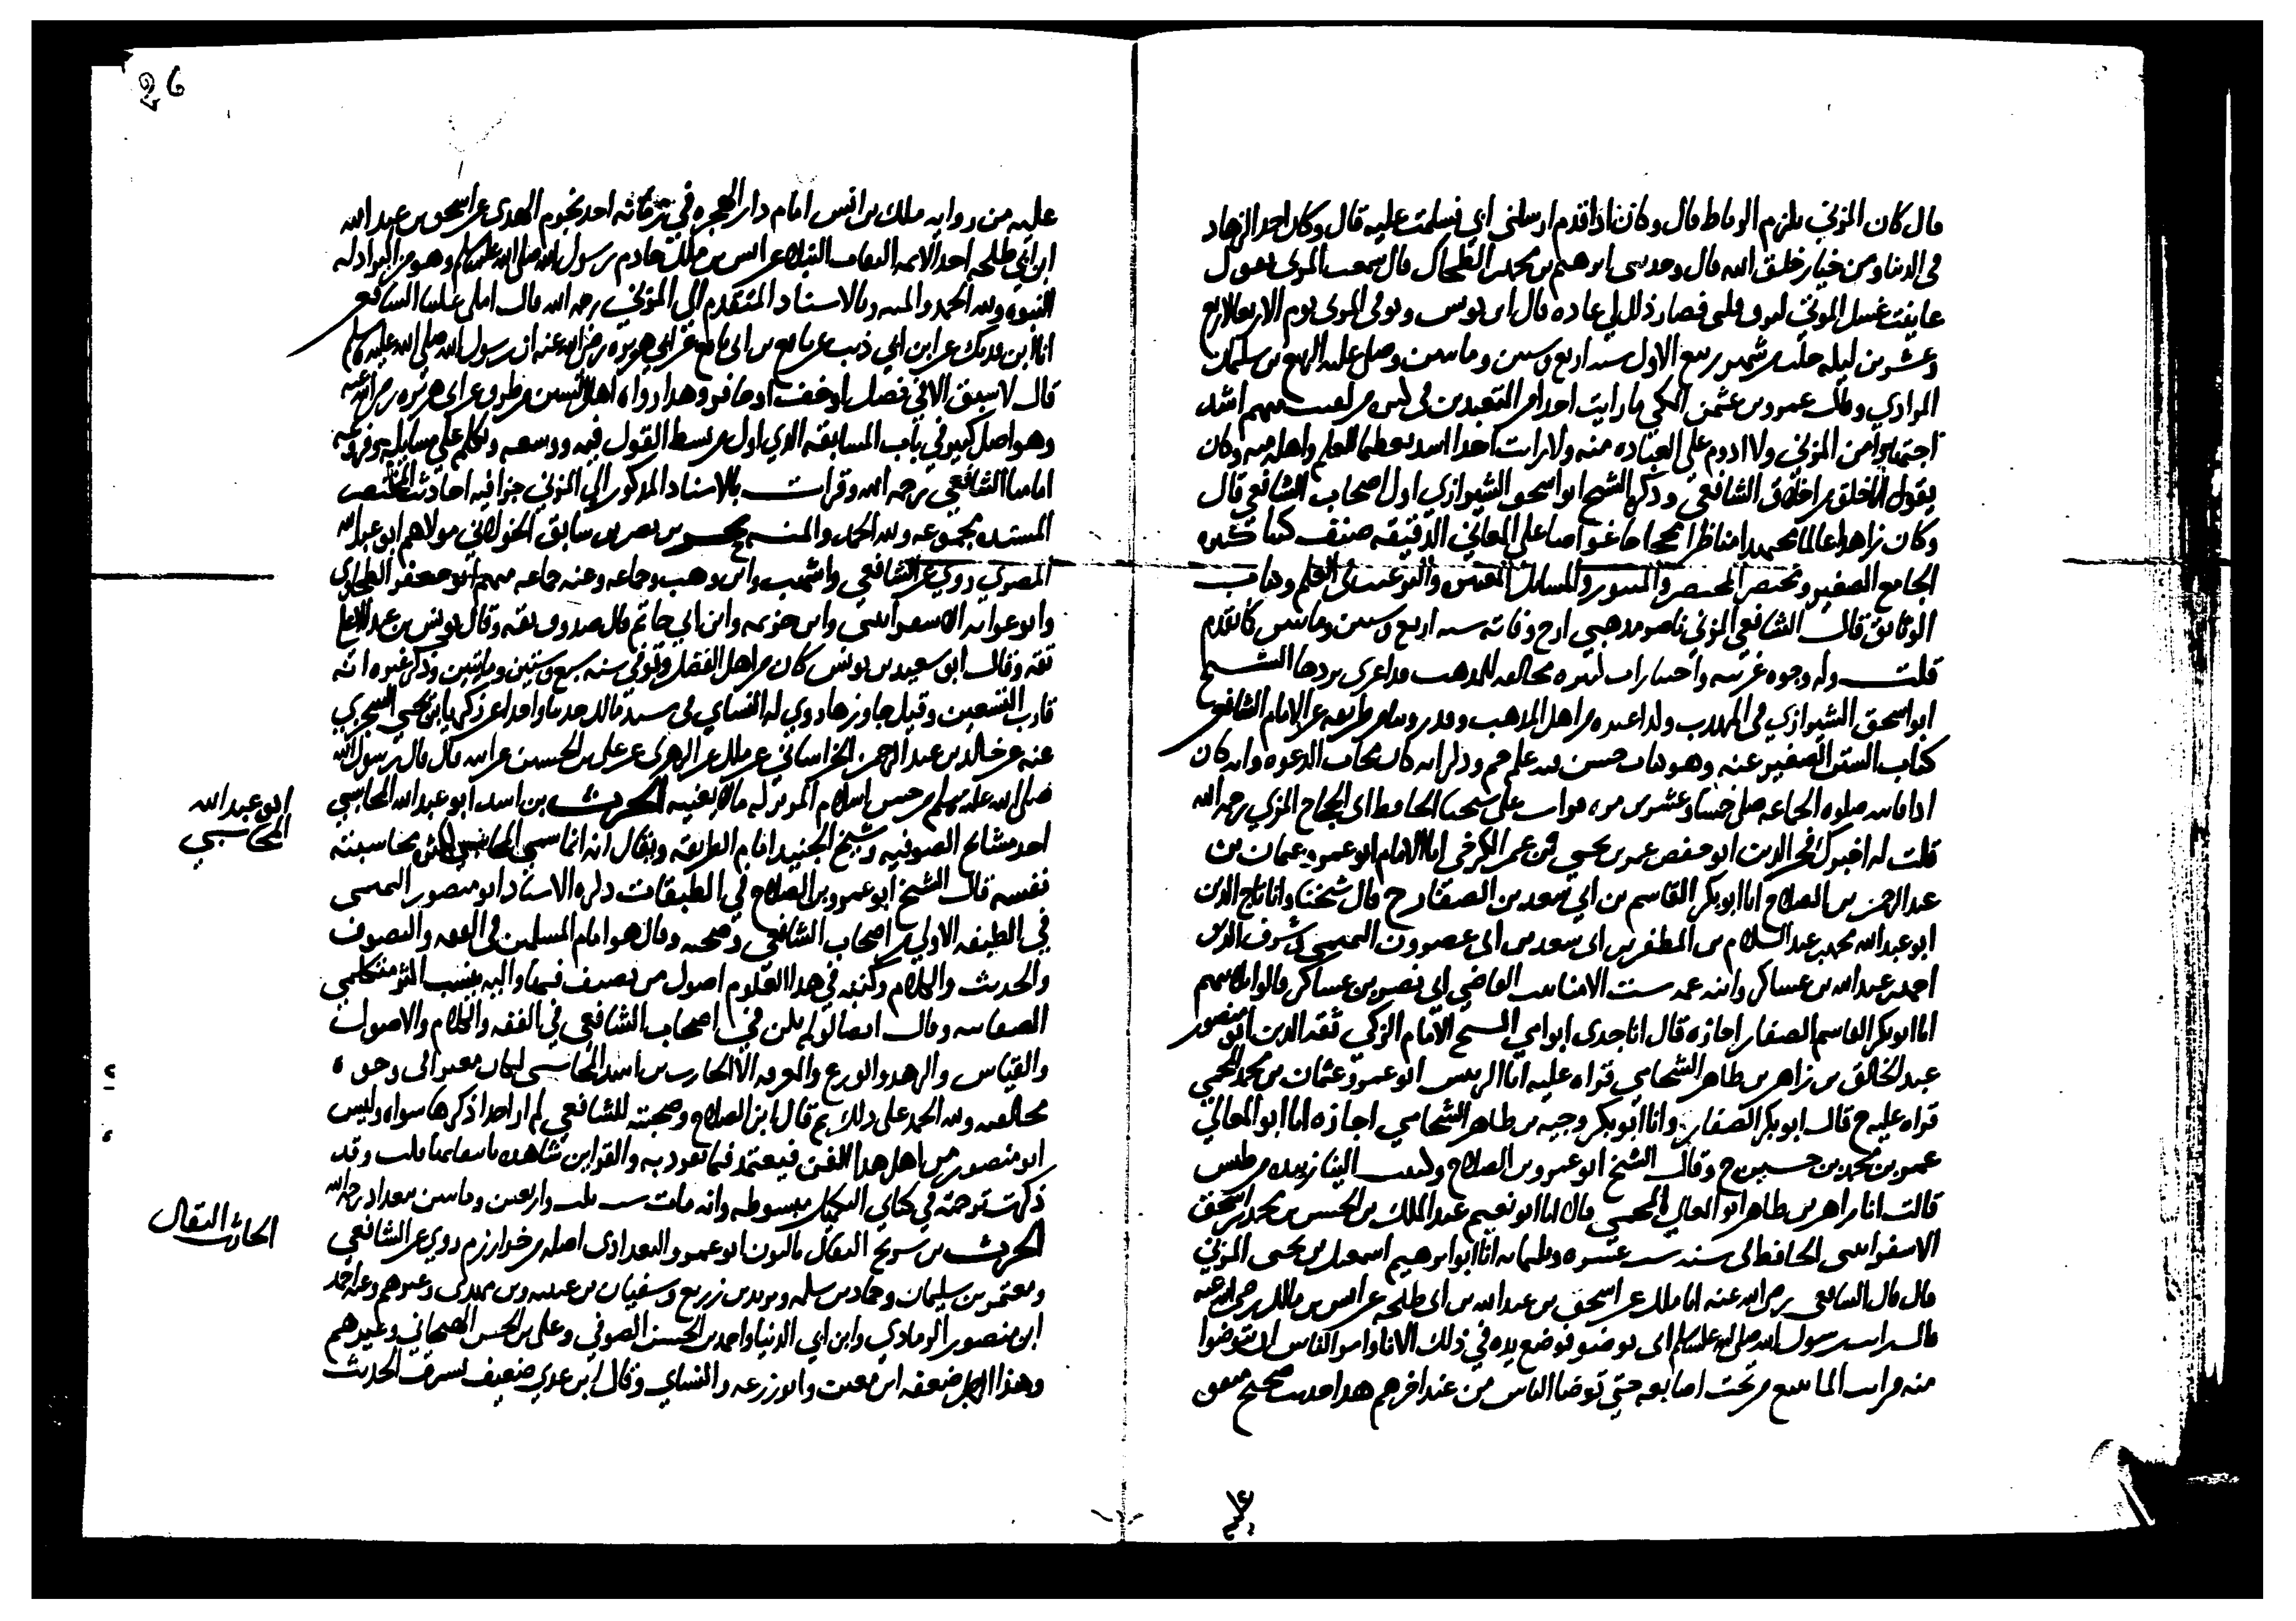 قال كان المزني يلزم الرباط قال وكان اذا قدم ارسلني ابي فسلمت عليه قال وكان احد الزهاد
في الدنيا ومن خيار خلق الله قال وحدثني ابرهيم بن محمد الطحال قال سمعت المزني يقول
عانيت غسل الموتى ليرق قلبي فصار ذلك لي عاده قال ابن يونس وتوفي المزني يوم الاربعا لاربع
وعشرين ليله خلت من شهر ربيع الاول سنه اربع وستين ومايتين وصلى عليه الربيع بن سليمان
المرادي وقال عمرو بن عثمن المكي ما رايت احدا من المتعبدين في كثره من لقيت منهم اشد
اجتهادا من المزني ولا ادوم على العباده منه ولا رايت احدا اشد تعظيما للعلم واهله منه وكان
يقول انا خلق من اخلاق الشافعي وذكره الشيخ ابو اسحق الشيرازي اول اصحاب الشافعي قال
وكان زاهدا عالما مجتهدا مناظرا محجاجا غواصا على المعاني الدقيقه صنف كتبا كثيره
الجامع الصغير ومختصر المختصر والمنثور والمسايل المعتبره والترغيب في العلم وكتاب
الوثائق قال الشافعي المزني ناصر مذهبي ارخ وفاته سنه اربع وستين ومايتين كما تقدم
قلت وله وجوه غريبه واختيارات كثيره مخالفه للمذهب يردها الشيخ
ابو اسحق الشيرازي في المهذب اهل المذهب وقد روينا من طريقه عن الامام الشافعي
كتاب السنن الصغير عنه وهو كتاب حسن فيه علم جم وذكر انه كان مجاب الدعوه وانه كان
اذا فاتته صلوه الجماعه صلى خمسا وعشرين مره قرات على شيخنا الحافظ ابي الحجاج المزي رحمه الله
قلت له اخبرك فخر الدين ابو حفص عمر بن يحيى بن عمر الكرخي انا الامام ابو عمرو عثمان بن
عبد الرحمن بن الصلاح انا ابو بكر القاسم بن ابي سعد بن الصفار ح قال شيخنا وانا تاج الدين
ابو عبد الله محمد بن عبد السلام بن المطهر بن ابي سعد بن ابي عصرون التميمي وشرف الدين
احمد بن عبد الله بن عساكر وابنه عمه ست الامنا بنت القاضي ابي نصر بن عساكر قالوا
انا ابو بكر القاسم الصفار اجازه قال انا جدي ابو امي الشيخ الامام الزكي ثقه الدين ابو منصور
عبد الخالق بن زاهر بن طاهر الشحامي قراه عليه انا الريس ابو عمرو عثمان بن محمد المحمي
قراه عليه ح قال ابو بكر الصفار وانا ابو بكر وجيه بن طاهر الشحامي اجازه انا ابو المعالي
عمر بن محمد بن حسين ح وقال الشيخ ابو عمرو بن الصلاح وكتبت الينا زينب
قالت انا زاهر بن طاهر ابو المعالي المحمي قال انا ابو نعيم عبد الملك بن الحسن بن محمد بن اسحق
الاسفرايني الحافظ ابي سنه ست عشره وثلثمايه انا ابو ابرهيم اسمعيل بن يحيى المزني
قال قال الشافعي رضي الله عنه انا ملك عن اسحق بن عبد الله بن ابي طلحه عن انس بن مالك رضي الله عنه
قال رايت رسول الله صلى الله عليه وسلم اتي بوضو فوضع يده في ذلك الانا وامر الناس ان يتوضوا
منه فرايت الما ينبع من تحت اصابعه حتى توضا الناس من عند اخرهم هذا حديث صحيح متفق
26
عليه من روايه ملك بن انس امام دار الهجره في زمانه احد نجوم الهدى عن اسحق بن عبد الله
ابن ابي طلحه احد الايمه الثقات النبلا عن انس بن ملك خادم رسول الله صلى الله عليه وسلم وهو من
النبوه ولله الحمد والمنه وبالاسناد المتقدم الى المزني رحمه الله قال املى علينا الشافعي
انا ابن ابي فديك عن ابن ابي ذيب عن نافع بن ابي نافع عن ابي هريره رضي الله عنه ان رسول الله صلى الله عليه وسلم
قال لا سبق الا في نصل او خف او حافر وهذا رواه اهل السنن من طرق عن ابي هريره رضي الله عنه
وهو اصل كبير في باب المسابقه الذي اول من بسط القول فيه ووسعه وتكلم على مسايله وفروعه
امامنا الشافعي رحمه الله وقرات بالاسناد المذكور الى المزني جزا فيه احاديث المختصر
المسنده مجموعه ولله الحمد والمنه بحر بن نصر بن سابق الخولاني مولاهم ابو عبد الله
المصري روى عن الشافعي واشهب وابن وهب وجماعه وعنه جماعه منهم ابو جعفر الطحاوي
وابو عوانه الاسفرايني وابن خزيمه وابن ابي حاتم قال صدوق ثقه وقال يونس بن عبد الاعلى
ثقه وقال ابو سعيد بن يونس كان من اهل الفضل وتوفي سنه سبع وستين ومايتين وذكر غيره انه
قارب التسعين وقيل جاوزها روى له النساي في مسند مالك حديثا واحدا عن زكريا بن يحيى السجزي
عنه عن خالد بن عبد الرحمن الخراساني عن ملك عن الزهري عن علي بن الحسين عن ابيه قال قال رسول الله
صلى الله عليه وسلم من حسن اسلام المرء تركه ما لا يعنيه الحرث بن اسد ابو عبد الله المحاسبي
احد مشايخ الصوفيه وشيخ الجنيد امام الطريقه ويقال انه انما سمي المحاسبي لكثره محاسبته
نفسه قال الشيخ ابو عمرو بن الصلاح في الطبقات ذكره الاستاد ابو منصور التميمي
في الطبقه الاولى من اصحاب الشافعي وصحبه وقال هو امام المسلمين في الفقه والتصوف
والحديث والكلام وكتبه في هذه العلوم اصول من يصنف فيها واليه ينسب اكثر متكلمي
الصفاتيه وقال ايضا لو لم يكن في اصحاب الشافعي في الفقه والكلام والاصول
والقياس والزهد والورع والمعرفه الا الحارث بن اسد المحاسبي لكان مغبرا في وجوه
مخالفيه ولله الحمد على ذلك ثم قال ابن الصلاح وصحبته للشافعي لم ار احدا ذكرها سواه وليس
ابو منصور من اهل هذا الفن فيعتمد فيما تفرد به والقراين شاهده بانتفايها قلت وقد
ذكرت ترجمته في كتابي التكميل مبسوطه وانه مات سنه ثلث واربعين ومايتين ببغداد رحمه الله
الحرث بن سريج النقال بالنون ابو عمرو البغدادي اصله من خوارزم روى عن الشافعي
ومعتمر بن سليمان وحماد بن سلمه ويزيد بن زريع وسفيان بن عيينه وبن مهدي وغيرهم وعنه احمد
ابن منصور الرمادي وابن ابي الدنيا واحمد بن الحسن الصوفي وعلي بن الحسن الصنعاني وغيرهم
وهذا الرجل ضعفه ابن معين وابو زرعه والنساي وقال ابن عدي ضعيف يسرق الحديث
ابو عبد الله
المحاسبي
الحارث النقال